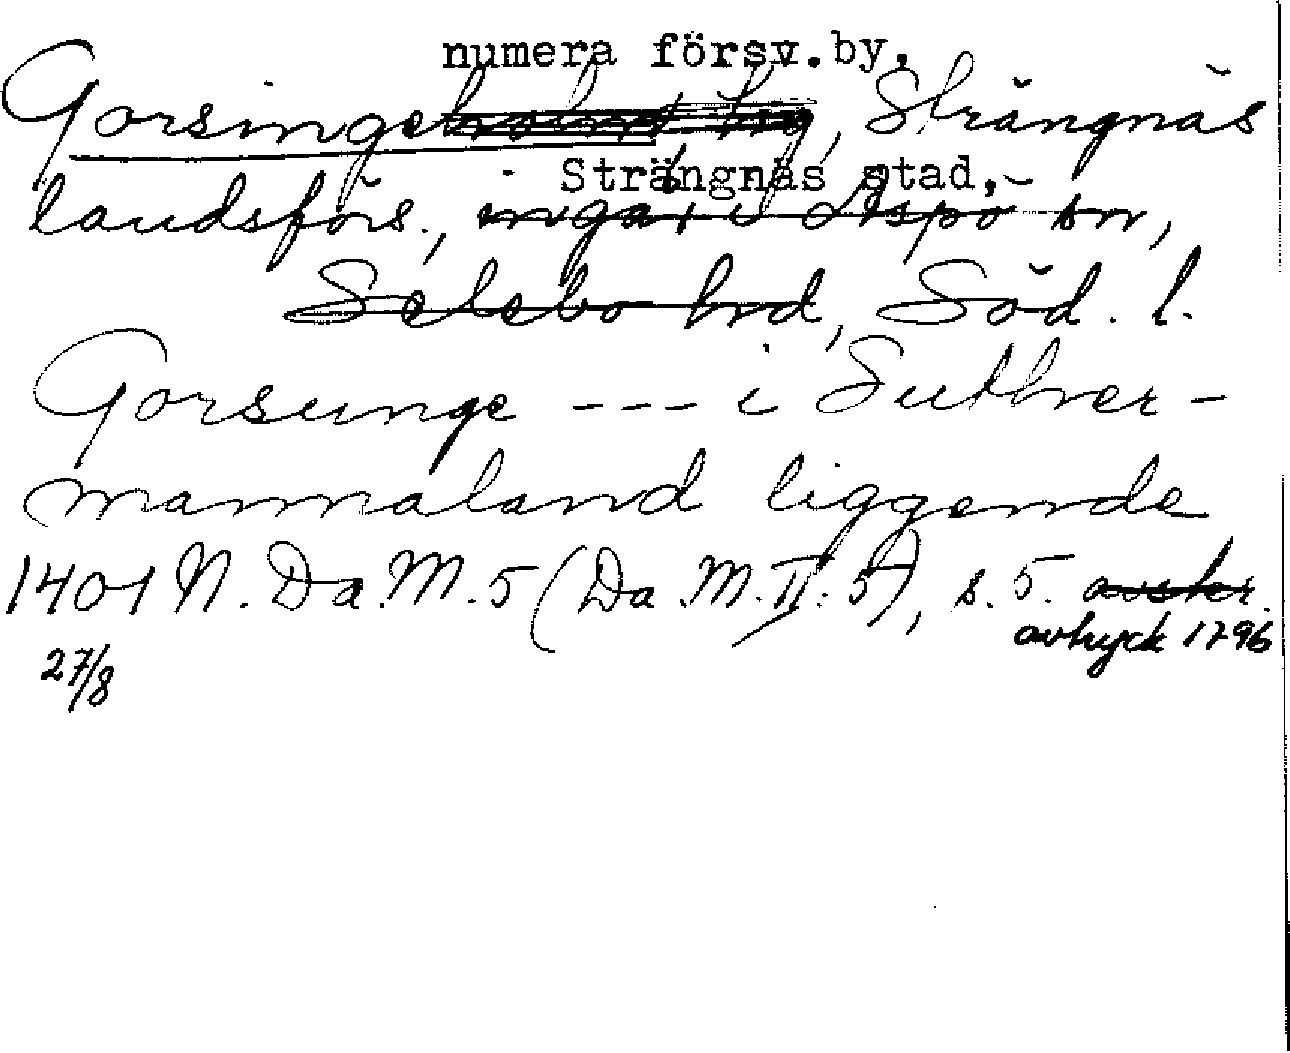 numera försv. by,
Gorsingeholm, hg, Strängnäs
Strängnäs stad,
landsförs., ingår i Aspö sn,
Selebo hrd, Söd. l.
Gorsunge --- i Suther-
mannaland liggende
1401 N. Da. M. 5 (Da. M. II. 5), s. 5. avskr.
avtryck 1796
27/8